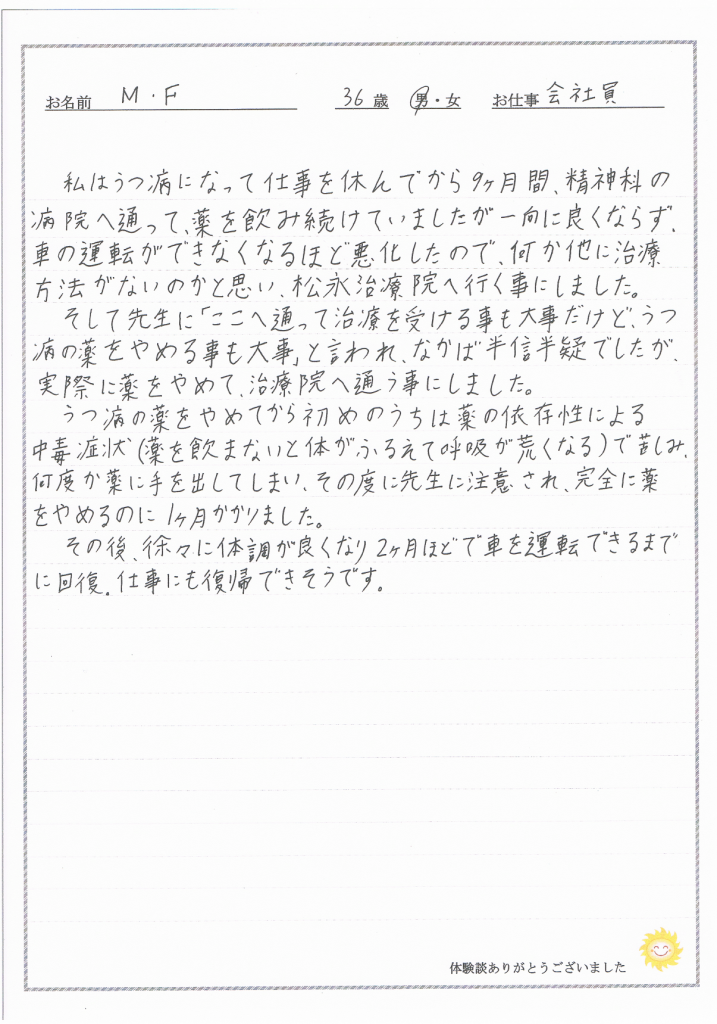 お名前 M・F 36 歳 男・女 お仕事 会社員
私はうつ病になって仕事を休んでから9ヶ月間、精神科の
病院へ通って、薬を飲み続けていましたが一向に良くならず、
車の運転ができなくなるほど悪化したので、何か他に治療
方法がないのかと思い、松永治療院へ行く事にしました。
そして先生に「ここへ通って治療を受ける事も大事だけど、うつ
病の薬をやめる事も大事」と言われ、なかば半信半疑でしたが、
実際に薬をやめて、治療院へ通う事にしました。
うつ病の薬をやめてから初めのうちは薬の依存性による
中毒症状(薬を飲まないと体がふるえて呼吸が荒くなる)で苦しみ、
何度か薬に手を出してしまい、その度に先生に注意され、完全に薬
をやめるのに1ヶ月かかりました。
その後、徐々に体調が良くなり2ヶ月ほどで車を運転できるまで
に回復。仕事にも復帰できそうです。
体験談ありがとうございました